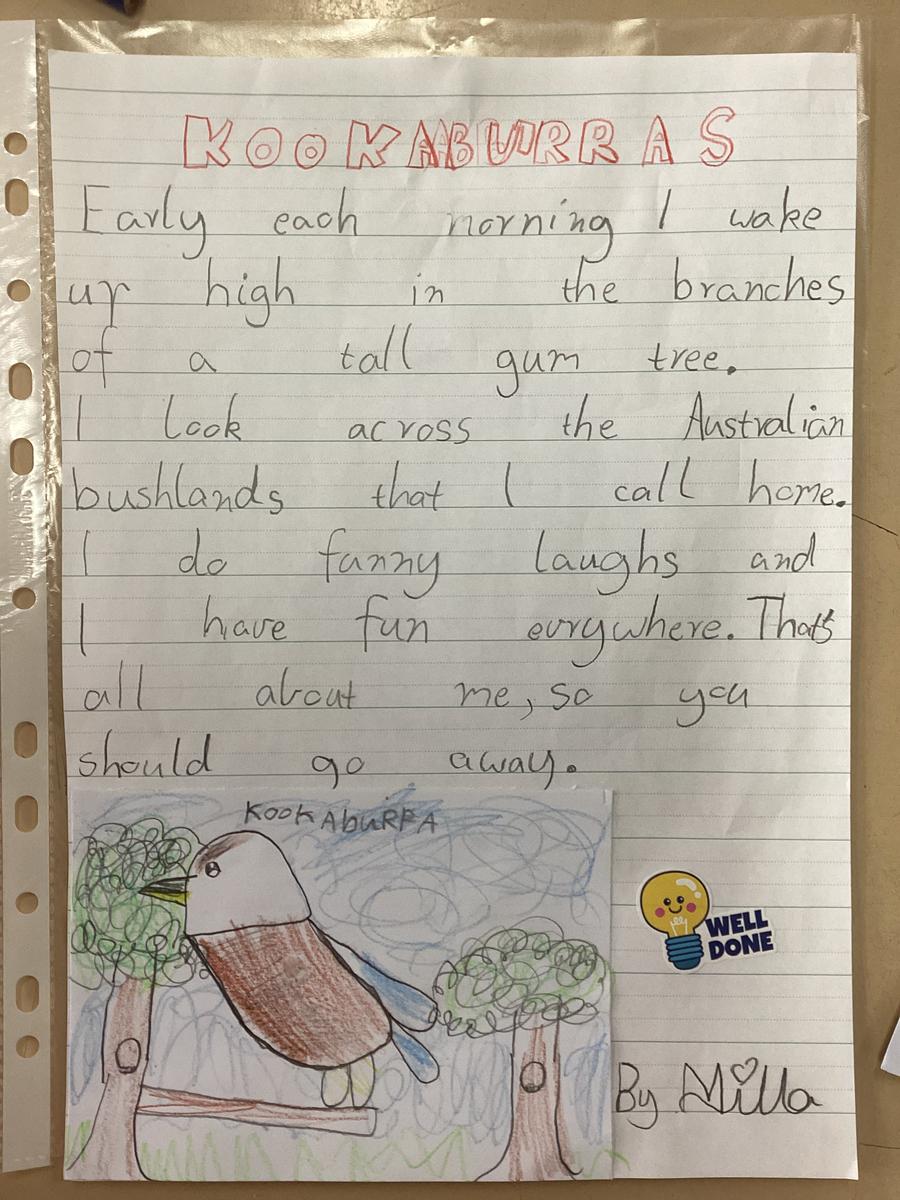 KOOKABURRAS
Early each morning I wake
up high in the branches
of a tall gum tree.
I look across the Australian
bushlands that I call home.
I do funny laughs and
I have fun evrywhere. That's
all about me, so you
should go away.
KooKAbuRRA
WELL
DONE
By Milla